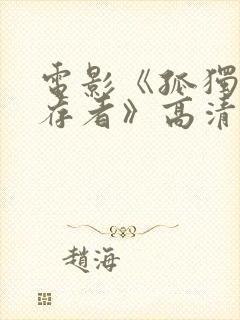 電影《孤獨
存者》高清
趙海